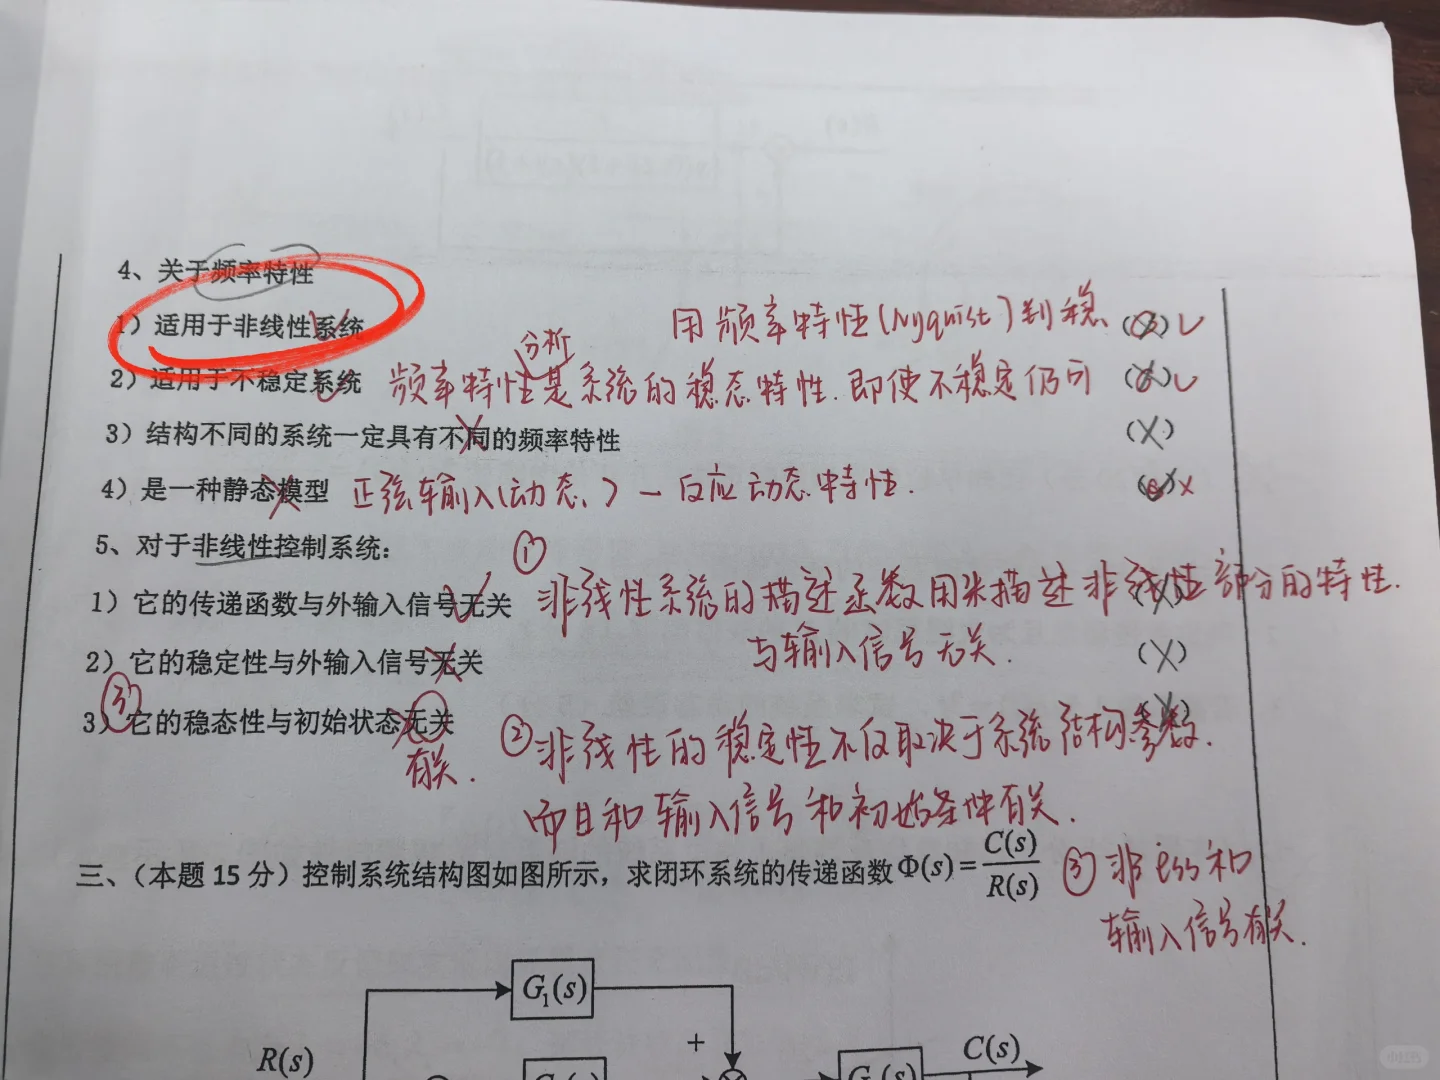 4、关于频率特性
1）适用于非线性系统 用频率特性(Nyquist)判稳 (×)√
分析
2）适用于不稳定系统 频率特性是系统的稳态特性.即使不稳定仍可 (×)√
3）结构不同的系统一定具有不同的频率特性 (×)
4）是一种静态模型 正弦输入(动态) — 反应动态特性. ( )×
5、对于非线性控制系统： ①
1）它的传递函数与外输入信号无关 非线性系统的描述函数用来描述非线性部分的特性.
与输入信号无关. (×)
2）它的稳定性与外输入信号无关
3）它的稳态性与初始状态无关 ③
有关. ②非线性的稳定性不仅取决于系统结构参数.
而且和输入信号和初始条件有关.
三、（本题 15 分）控制系统结构图如图所示，求闭环系统的传递函数 Φ(s)=C(s)/R(s) ③非 ess和
输入信号有关.
G₁(s)
+
R(s) C(s)